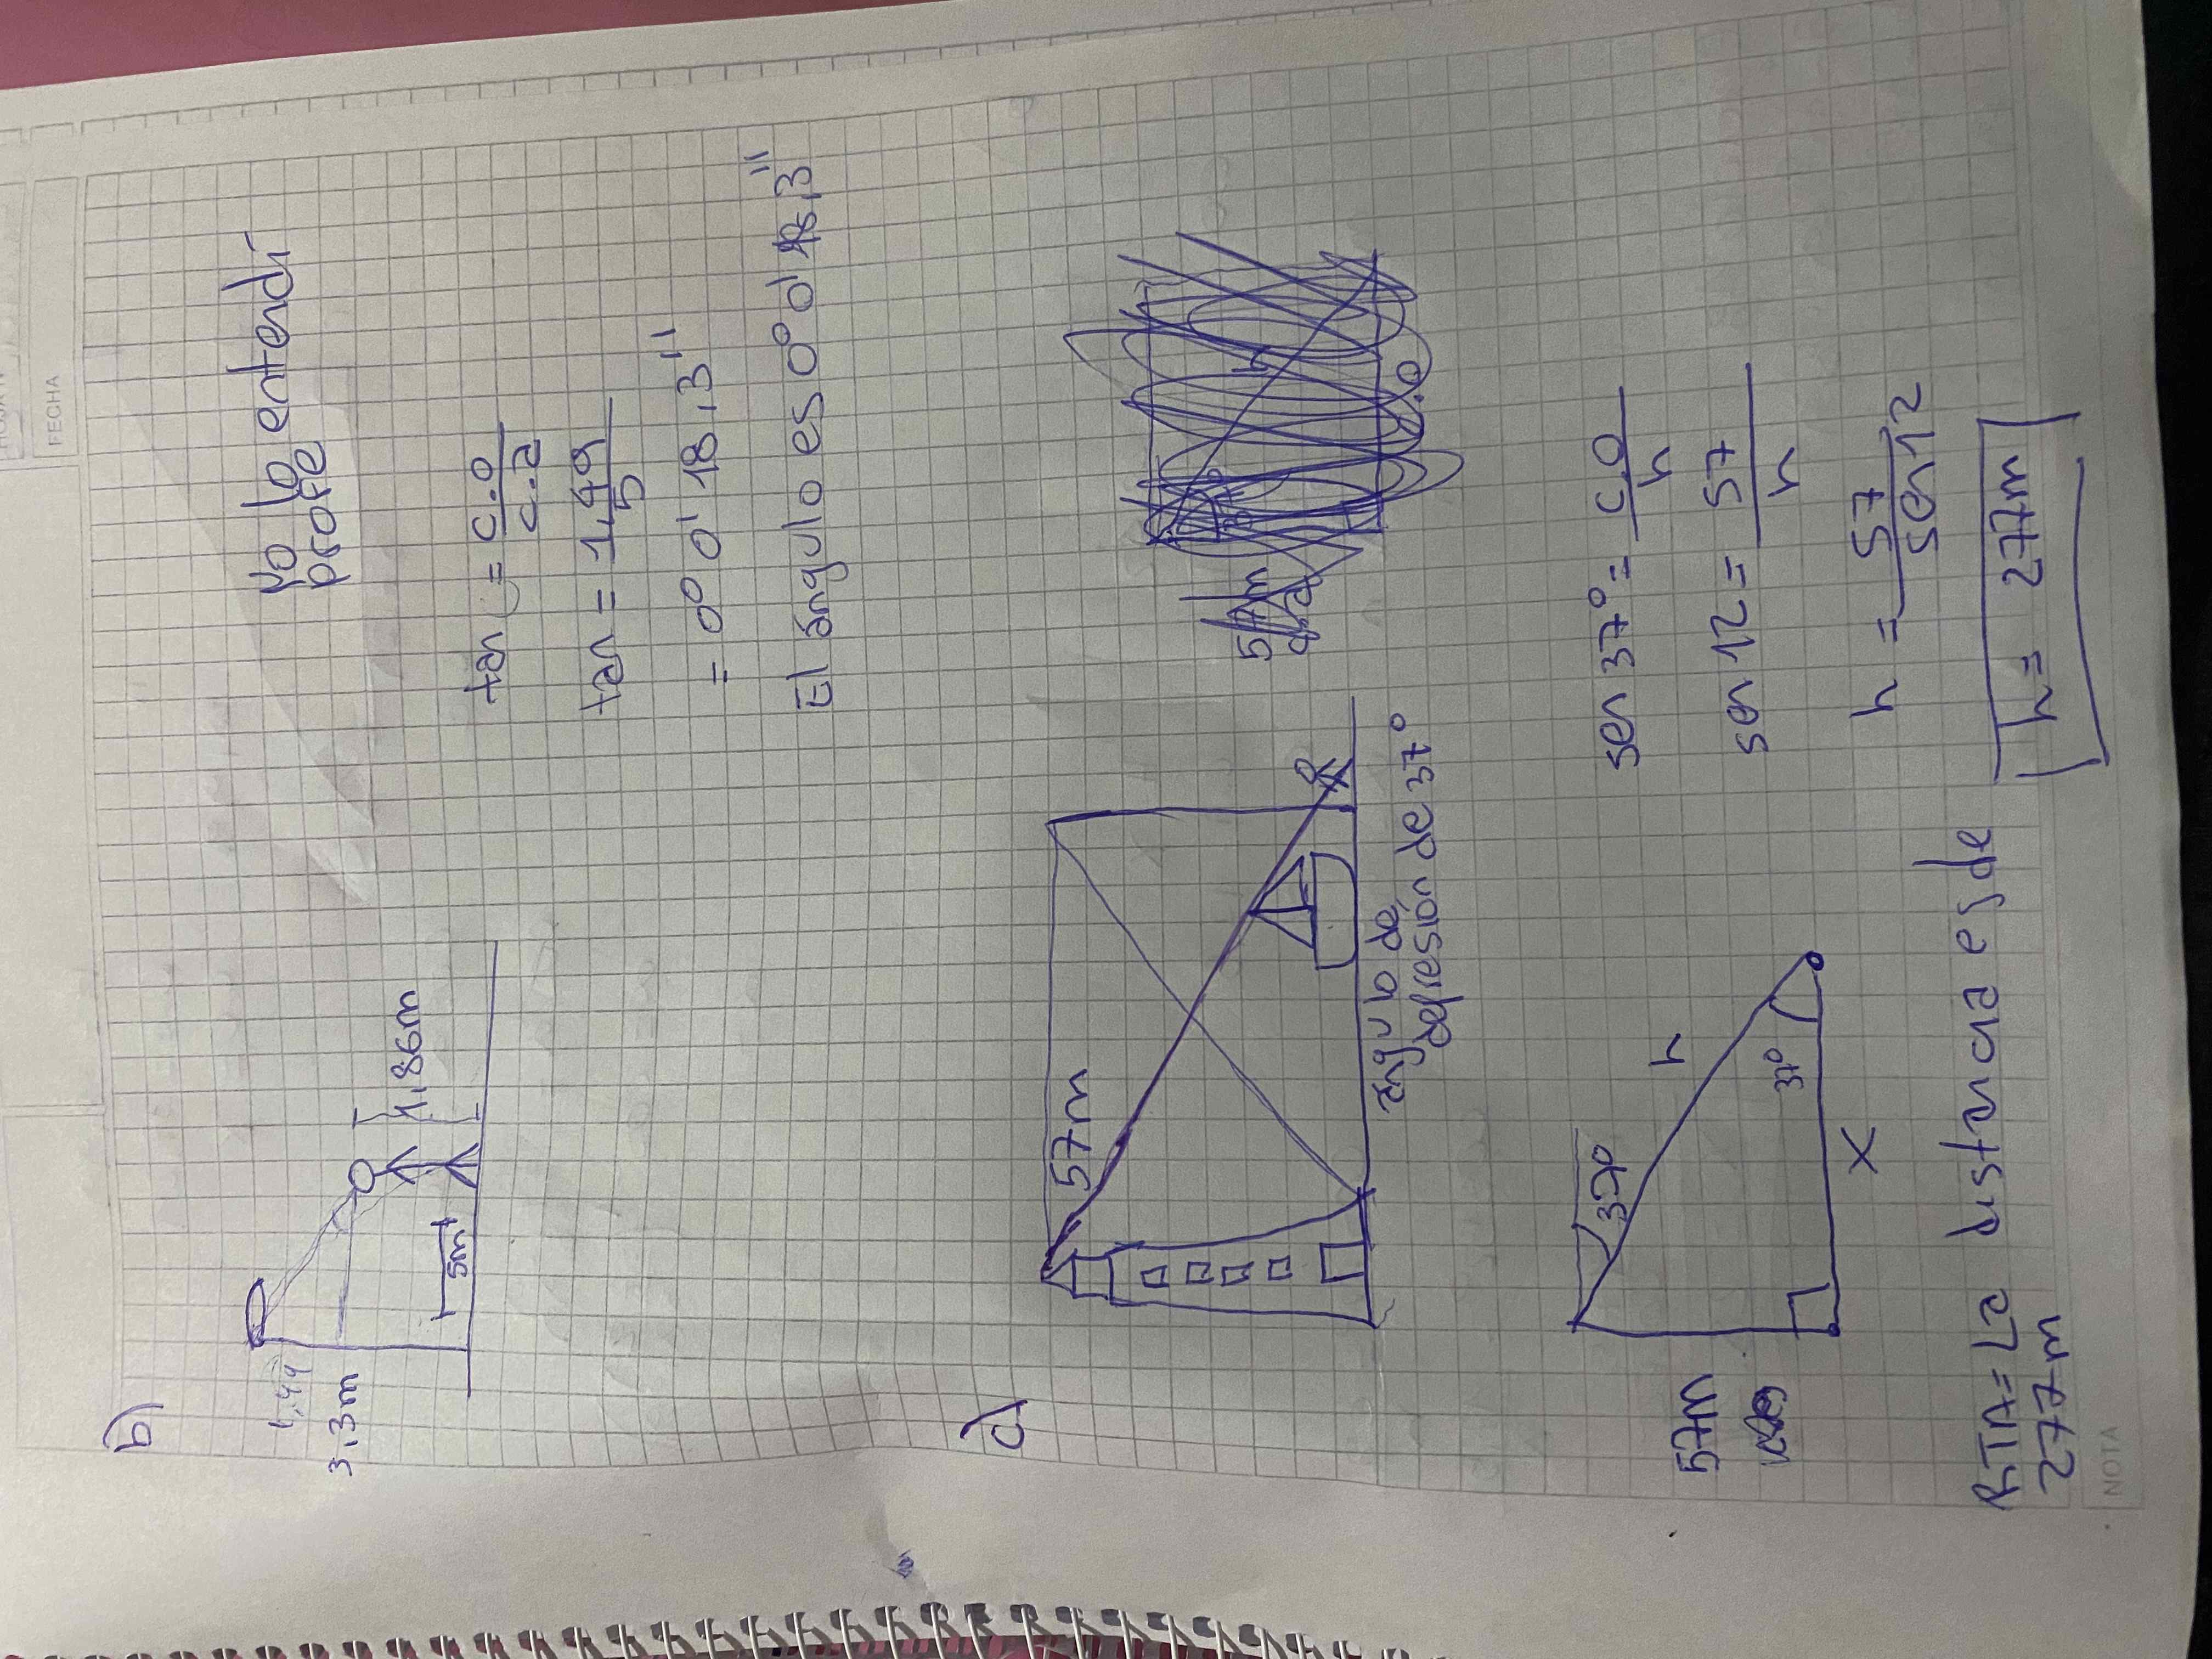 FECHA
b)
No lo entendí
profe
1,44
3,3m
5m
1,86m
tan = c.o
c.a
tan = 1,49
5
= 0° 0' 18,3''
El ángulo es 0° 0' 18,3''
c)
57m
ángulo de
depresión de 37°
57m
h
57m
37°
h
37°
x
sen 37° = c.o
h
sen 12 = 57
h
h = 57
sen 12
h = 277m
RTA= La distancia es de
277m
NOTA